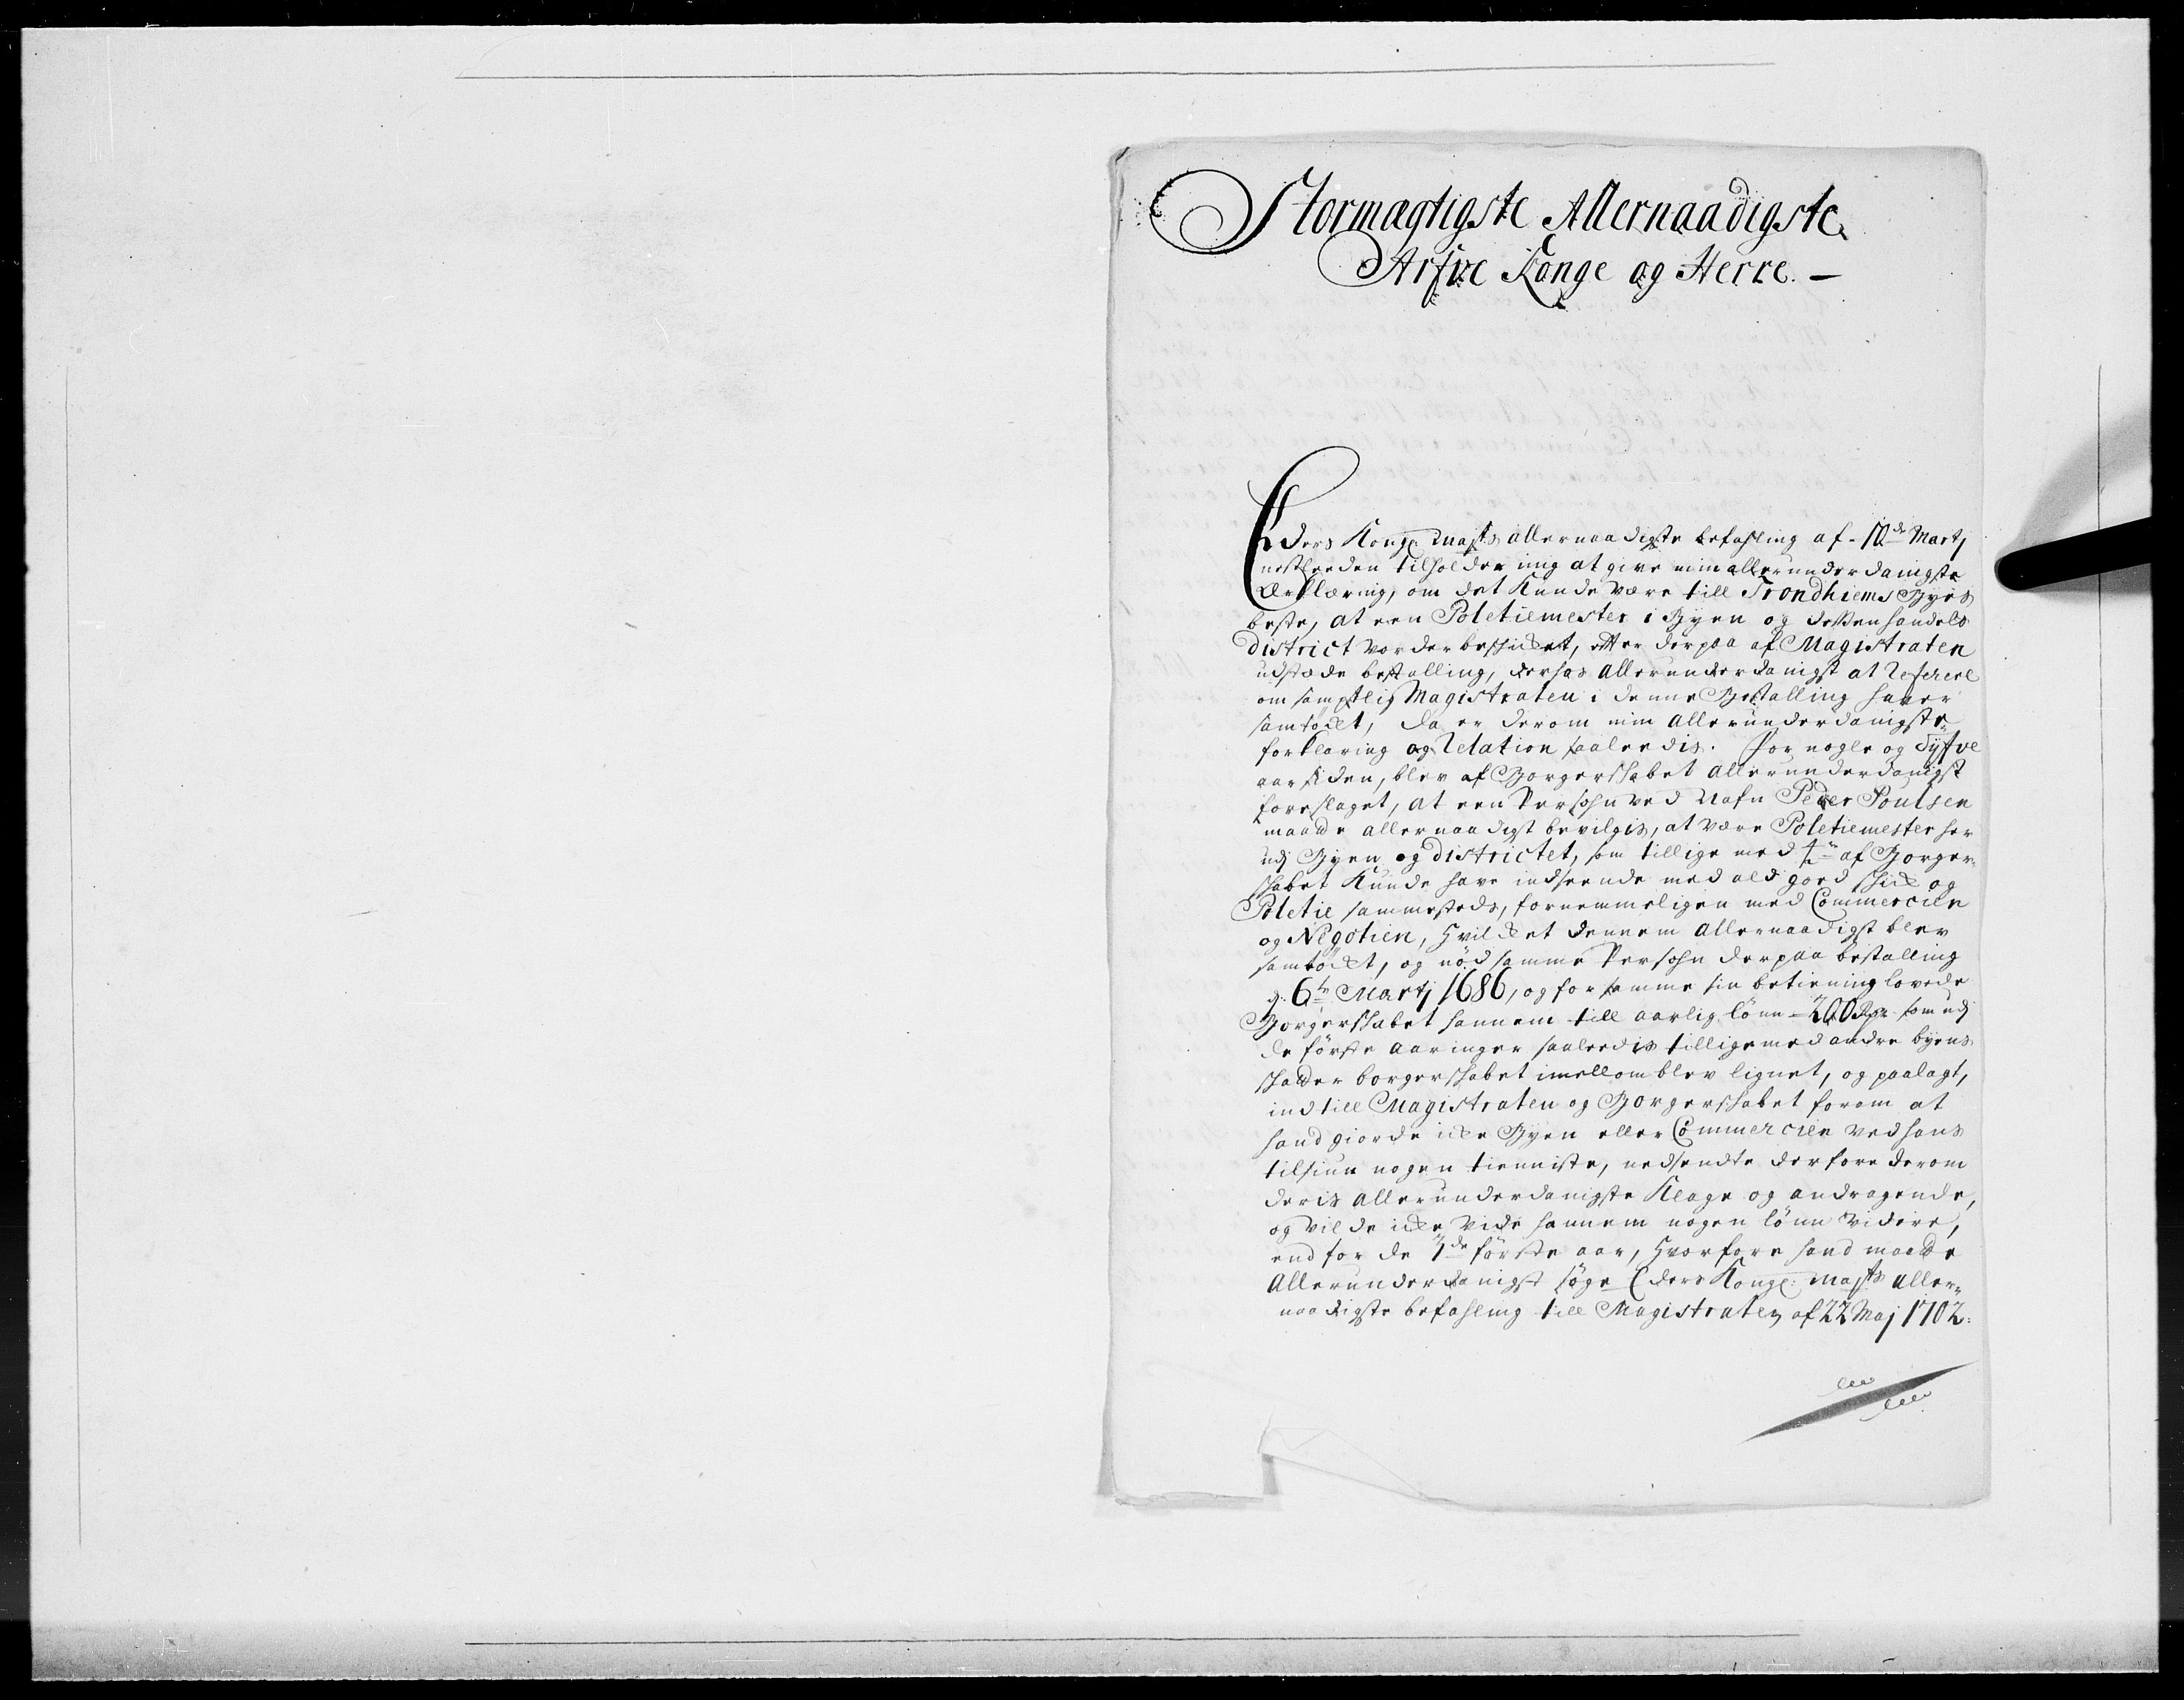 Stormægtigste Allernaadigste
Arfve Konge og Herre. —
Eders Kongl: Maÿts allernaadigste befahling af 10de Martj
nestleeden tilholder mig at give min allerunderdanigste
Erklæring, om det Kunde være till Trondhiems Byes
beste, at een Poletiemester i Byen og dessen handels
District vorder beskicket, efter derpaa af Magistraten
udstæde bestalling, derhos allerunderdanigst at Referere
om samptlig Magistraten i denne Bestalling haver
samtöcket, da er derom min allerunderdanigste
forklaring og Relation saaledis. For nogle og Tyfve
aar siden, blev af Borgerskabet allerunderdanigst
foreslaget, at een Persohn ved Nafn Peder Poulsen
maatte allernaadigst bevilgis, at være Poletiemester her
udj Byen og Districtet, som tillige med af Borger-
skabet Kunde have indseende med ald goed skick og
Poletie sammesteds, fornemmeligen med Commercien
og Negotien, hvilcket dennem allernaadigst blev
samtöcket, og nöd samme Persohn derpaa bestalling
d: 6te Martj 1686, og for samme sin betiening lovede
Borgerskabet hannem till aarlig lönn 200 Rdr som udj
de förste aaringer saaledis tillige med andre byens
skatter borgerskabet imellom blev lignet, og paalagt,
indtill Magistraten og Borgerskabet fornam at
hand giorde icke Byen eller Commercien ved hans
tilsiun nogen tienniste, nedsendte derfore derom
deris allerunderdanigste Klage og andragende,
og vilde icke vide hannem nogen lönn videre,
end for de 3de förste aar, hvorfore hand maatte
allerunderdanigst söge Eders Kongl: Mayts aller-
naadigste befahling till Magistraten af 22 Maj 1702.